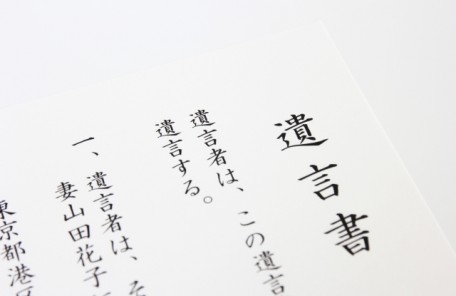 遺言書
遺言者は、この遺言
遺言する。
一、遺言者は、そ
妻山田花子
東京都港区